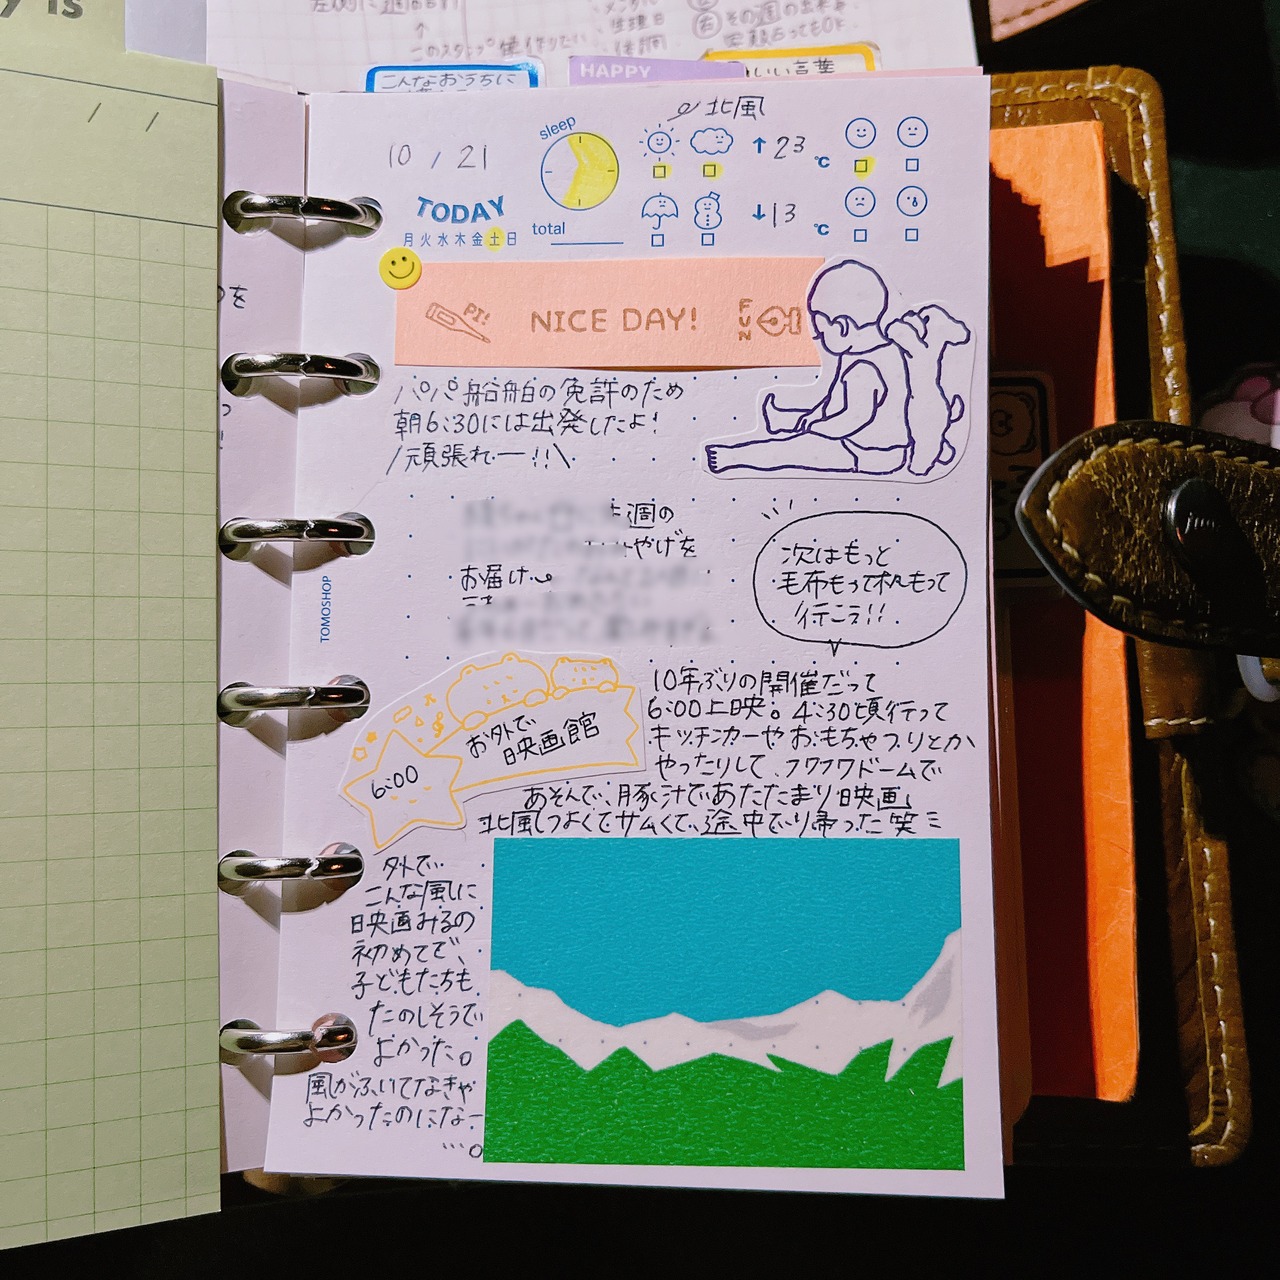 y is
/ /
こんなおうちに
HAPPY
いい言葉
北風
10 / 21
sleep
↑23 ℃
TODAY
月火水木金土日
total
↓13 ℃
PI!
NICE DAY!
FUN
パパ船舶の免許のため
朝6:30には出発したよ!
/頑張れー!!\
週の
やげを
お届け
次はもっと
毛布もって机もって
行こう!!
TOMOSHOP
10年ぶりの開催だって
6:00上映。4:30頃行って
キッチンカーやおもちゃつりとか
やったりして、フワフワドームで
あそんで、豚汁であたたまり映画
北風つよくてサムくて、途中で帰った笑
お外で
映画館
6:00
外で
こんな風に
映画みるの
初めてで、
子どもたちも
たのしそうで
よかった。
風がふいてなきゃ
よかったのになー
…。